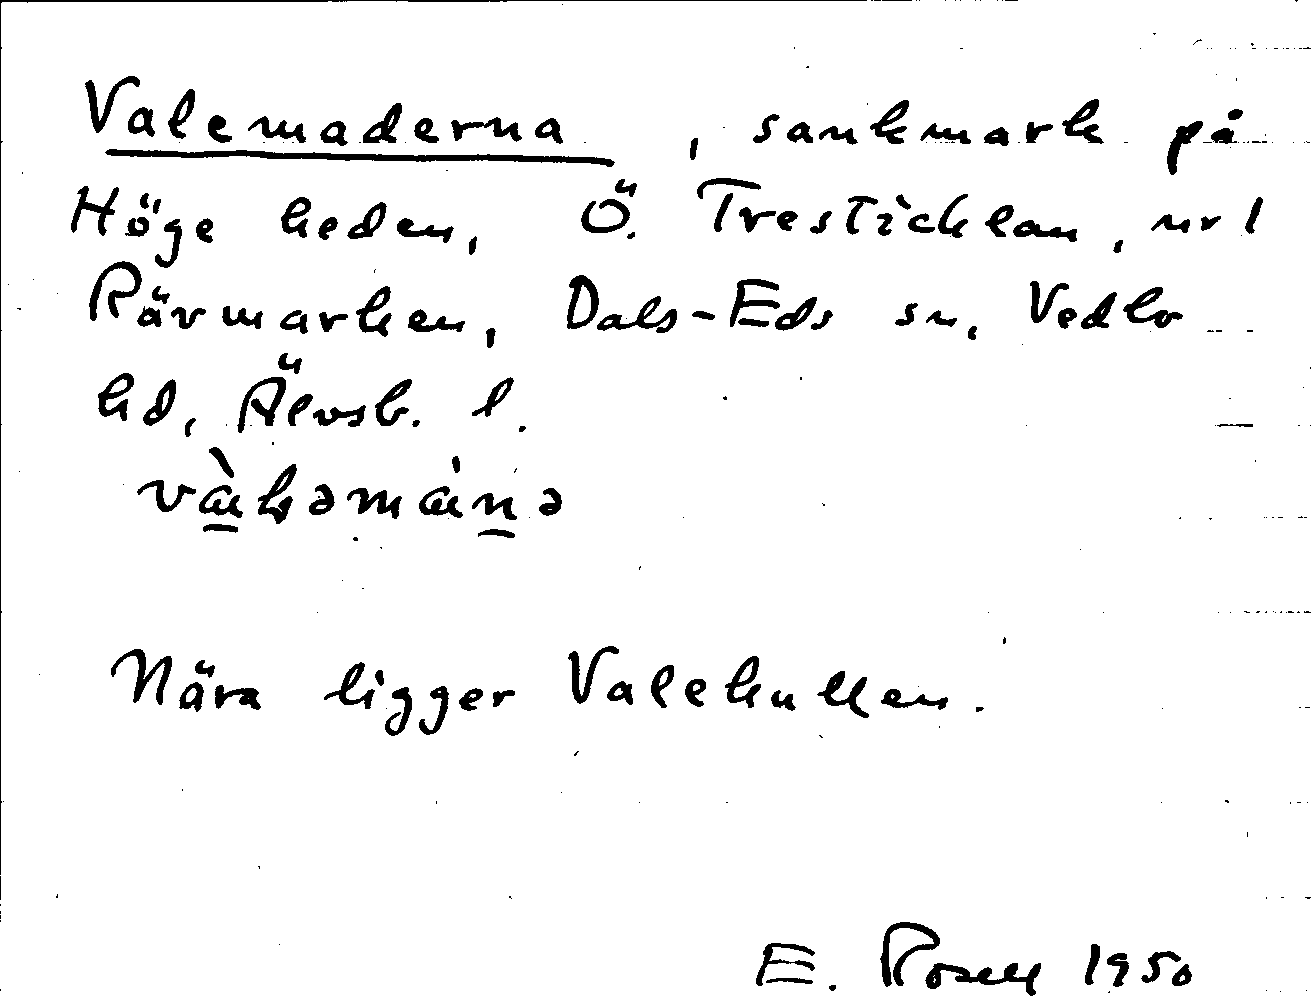 Valemaderna, sankmark på
Höge heden, Ö. Tresticklan, nr 1
Rävmarken, Dals-Eds sn, Vedbo
hd, Älvsb. l.
Nära ligger Valekullen.
E. Rosell 1950